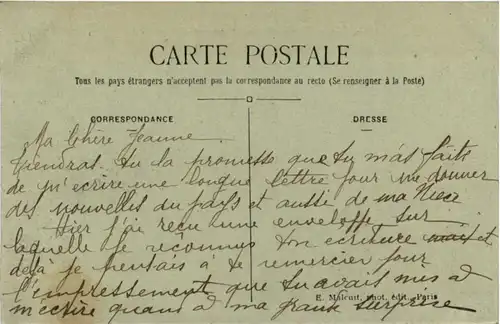 CARTE POSTALE
Tous les pays étrangers n'acceptent pas la correspondance au recto (Se renseigner à la Poste)
CORRESPONDANCE
DRESSE
Ma Chère Jeanne
tiendras tu la promesse que tu m'as faite
de m'écrire une longue lettre pour me donner
des nouvelles du pays et aussi de ma Niece
Hier j'ai reçu une enveloppe sur
laquelle je reconnus ton écriture et
déjà je pensais à te remercier pour
l'empressement que tu avais mis à
m'écrire quand à ma grande surprise
E. Malcuit, phot. édit., Paris